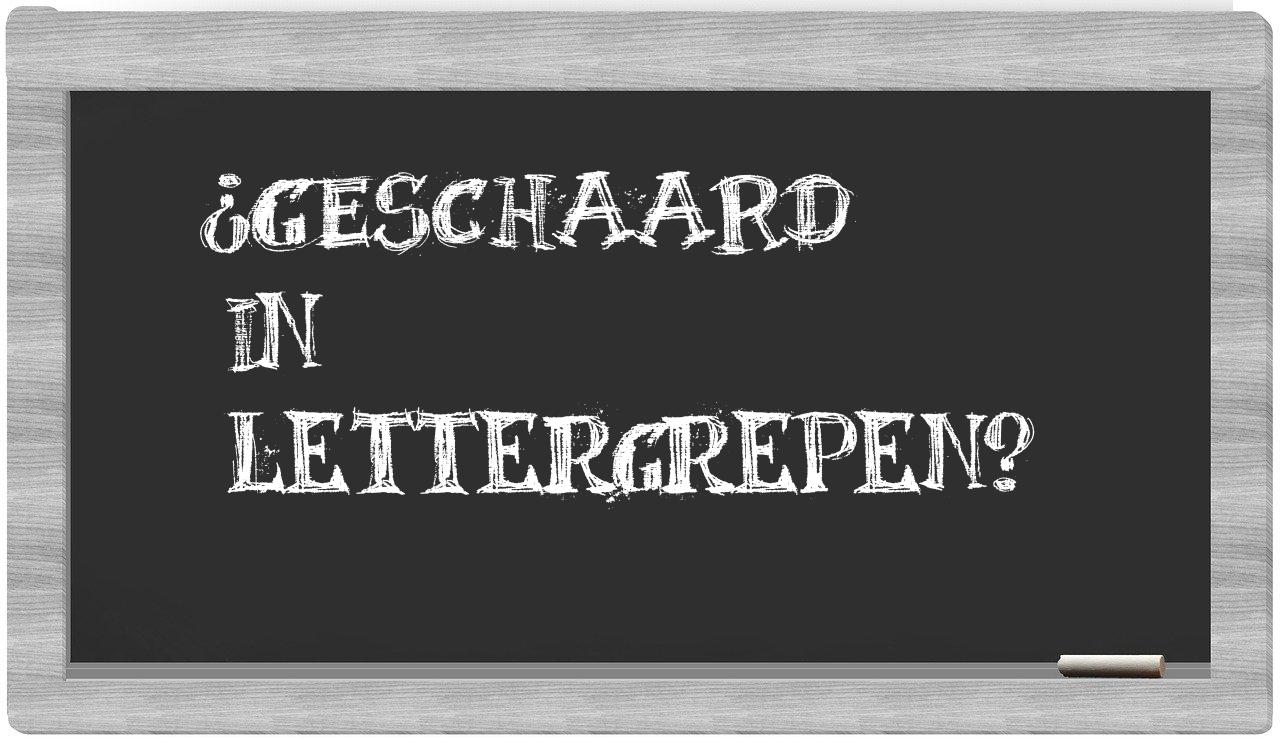 ¿GESCHAARD
IN
LETTERGREPEN?